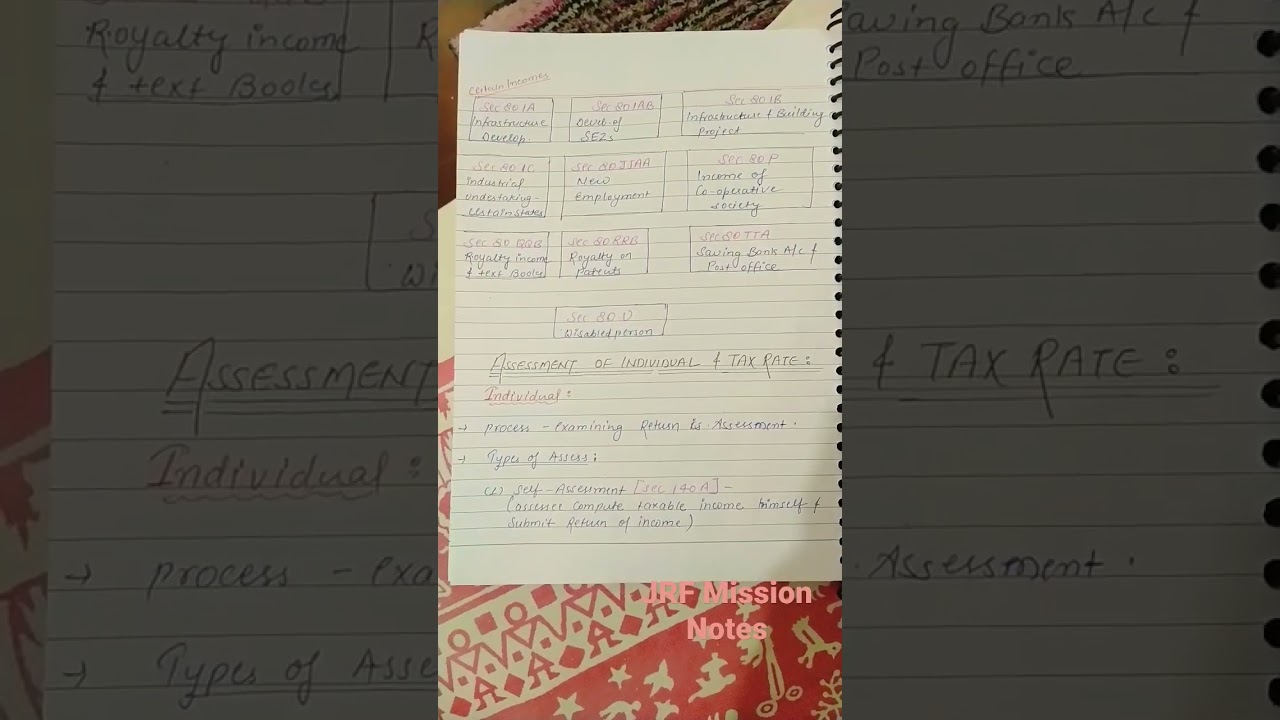 Certain Incomes
Sec 80 IA
Infrastructure
Develop.
Sec 80 IAB
Develo. of
SEZs
Sec 80 IB
Infrastructure & Building
Project
Sec 80 IC
Industrial
undertaking -
certain states
Sec 80 JJAA
New
Employment
Sec 80 P
Income of
Co-operative
society
Sec 80 QQB
Royalty income
& text Books
Sec 80 RRB
Royalty on
Patents
Sec 80 TTA
Saving Bank A/c &
Post office
Sec 80 U
Disabled person
ASSESSMENT OF INDIVIDUAL & TAX RATE :
Individual :
→ process - examining Return is Assessment.
→ Types of Assess :
(1) Self - Assessment [Sec 140A] -
(assessee compute taxable income himself &
Submit Return of income)
JRF Mission
Notes
Royalty income
& text Books
Saving Bank A/c &
Post office
ASSESSMENT
& TAX RATE :
Individual :
→ process - exa
Assessment.
→ Types of Asse